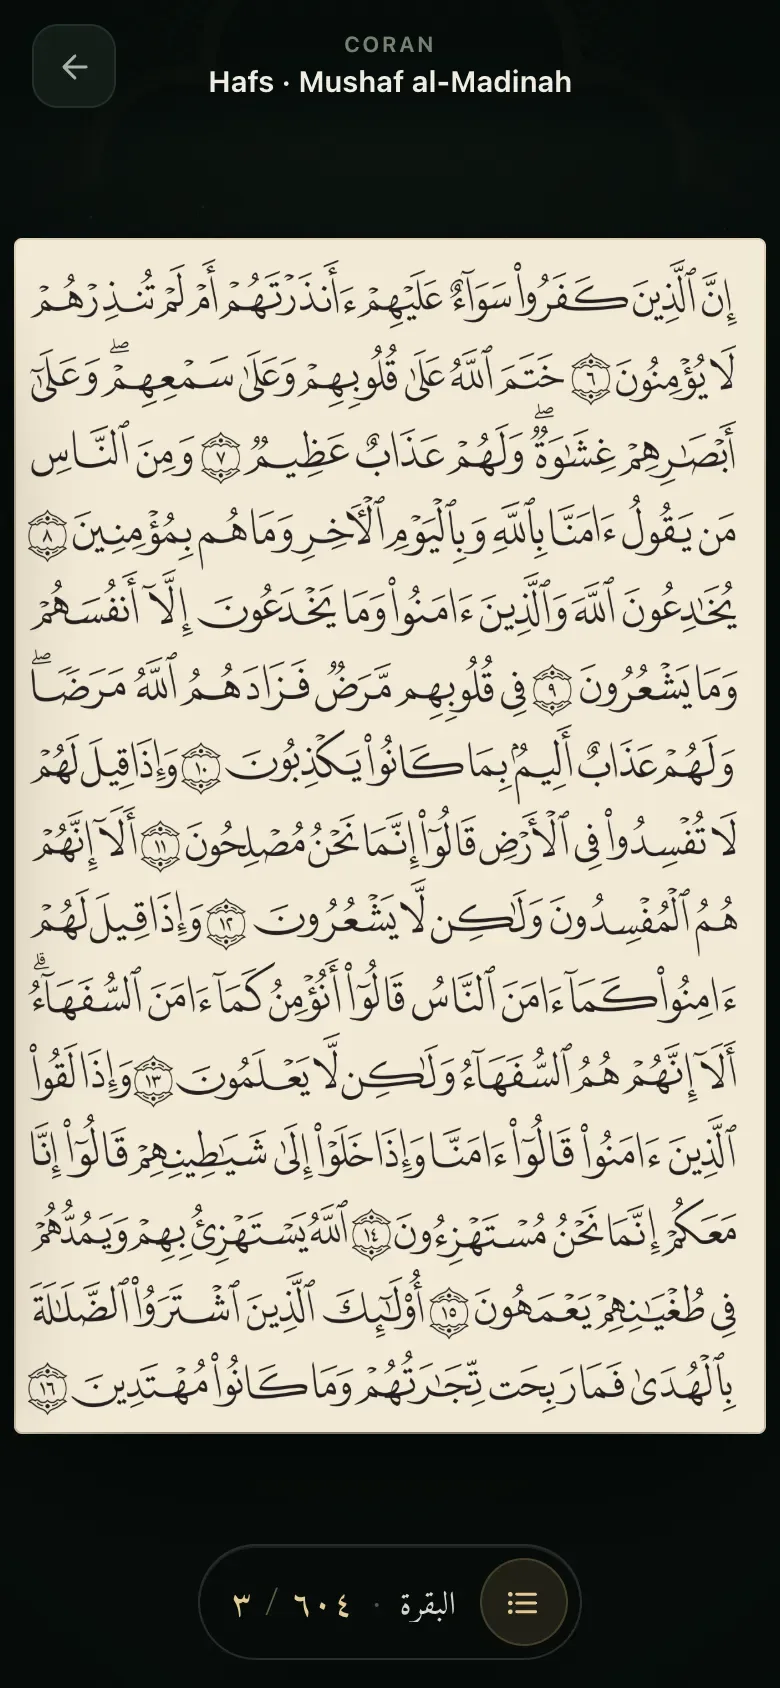 CORAN
Hafs · Mushaf al-Madinah
إِنَّ ٱلَّذِينَ كَفَرُواْ سَوَآءٌ عَلَيْهِمْ ءَأَنذَرْتَهُمْ أَمْ لَمْ تُنذِرْهُمْ
لَا يُؤْمِنُونَ ٦ خَتَمَ ٱللَّهُ عَلَىٰ قُلُوبِهِمْ وَعَلَىٰ سَمْعِهِمْۖ وَعَلَىٰٓ
أَبْصَٰرِهِمْ غِشَٰوَةٌۖ وَلَهُمْ عَذَابٌ عَظِيمٌ ٧ وَمِنَ ٱلنَّاسِ
مَن يَقُولُ ءَامَنَّا بِٱللَّهِ وَبِٱلْيَوْمِ ٱلْأٓخِرِ وَمَا هُم بِمُؤْمِنِينَ ٨
يُخَٰدِعُونَ ٱللَّهَ وَٱلَّذِينَ ءَامَنُواْ وَمَا يَخْدَعُونَ إِلَّآ أَنفُسَهُمْ
وَمَا يَشْعُرُونَ ٩ فِى قُلُوبِهِم مَّرَضٌ فَزَادَهُمُ ٱللَّهُ مَرَضًاۖ
وَلَهُمْ عَذَابٌ أَلِيمٌۢ بِمَا كَانُواْ يَكْذِبُونَ ١٠ وَإِذَا قِيلَ لَهُمْ
لَا تُفْسِدُواْ فِى ٱلْأَرْضِ قَالُوٓاْ إِنَّمَا نَحْنُ مُصْلِحُونَ ١١ أَلَآ إِنَّهُمْ
هُمُ ٱلْمُفْسِدُونَ وَلَٰكِن لَّا يَشْعُرُونَ ١٢ وَإِذَا قِيلَ لَهُمْ
ءَامِنُواْ كَمَآ ءَامَنَ ٱلنَّاسُ قَالُوٓاْ أَنُؤْمِنُ كَمَآ ءَامَنَ ٱلسُّفَهَآءُۗ
أَلَآ إِنَّهُمْ هُمُ ٱلسُّفَهَآءُ وَلَٰكِن لَّا يَعْلَمُونَ ١٣ وَإِذَا لَقُواْ
ٱلَّذِينَ ءَامَنُواْ قَالُوٓاْ ءَامَنَّا وَإِذَا خَلَوْاْ إِلَىٰ شَيَٰطِينِهِمْ قَالُوٓاْ إِنَّا
مَعَكُمْ إِنَّمَا نَحْنُ مُسْتَهْزِءُونَ ١٤ ٱللَّهُ يَسْتَهْزِئُ بِهِمْ وَيَمُدُّهُمْ
فِى طُغْيَٰنِهِمْ يَعْمَهُونَ ١٥ أُوْلَٰٓئِكَ ٱلَّذِينَ ٱشْتَرَوُاْ ٱلضَّلَٰلَةَ
بِٱلْهُدَىٰ فَمَا رَبِحَت تِّجَٰرَتُهُمْ وَمَا كَانُواْ مُهْتَدِينَ ١٦
البقرة · ٦٠٤ / ٣